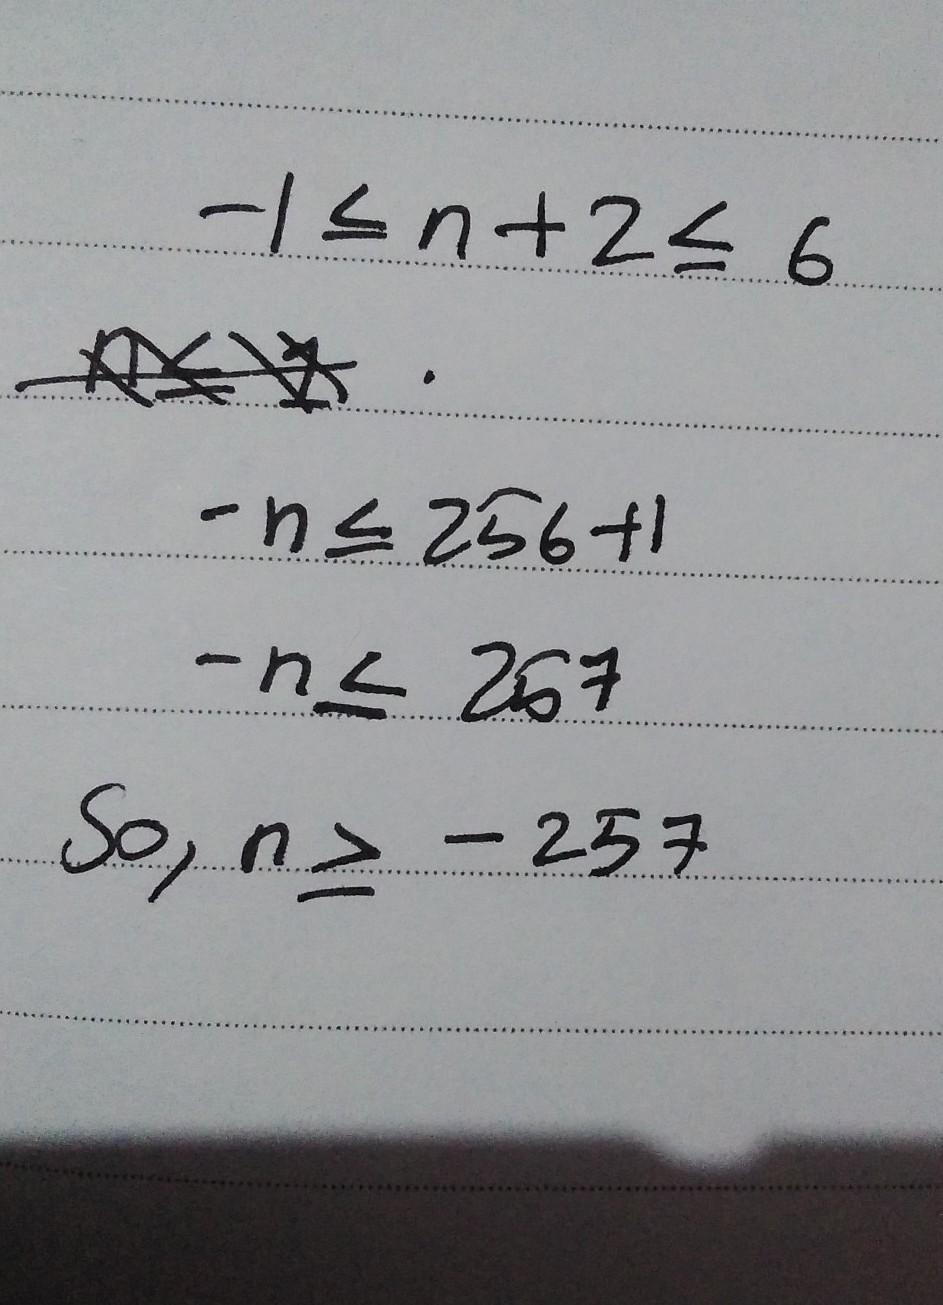 -1 ≤ n + 2 ≤ 6
-n ≤ 256 +1
-n ≤ 267
So, n ≥ - 257